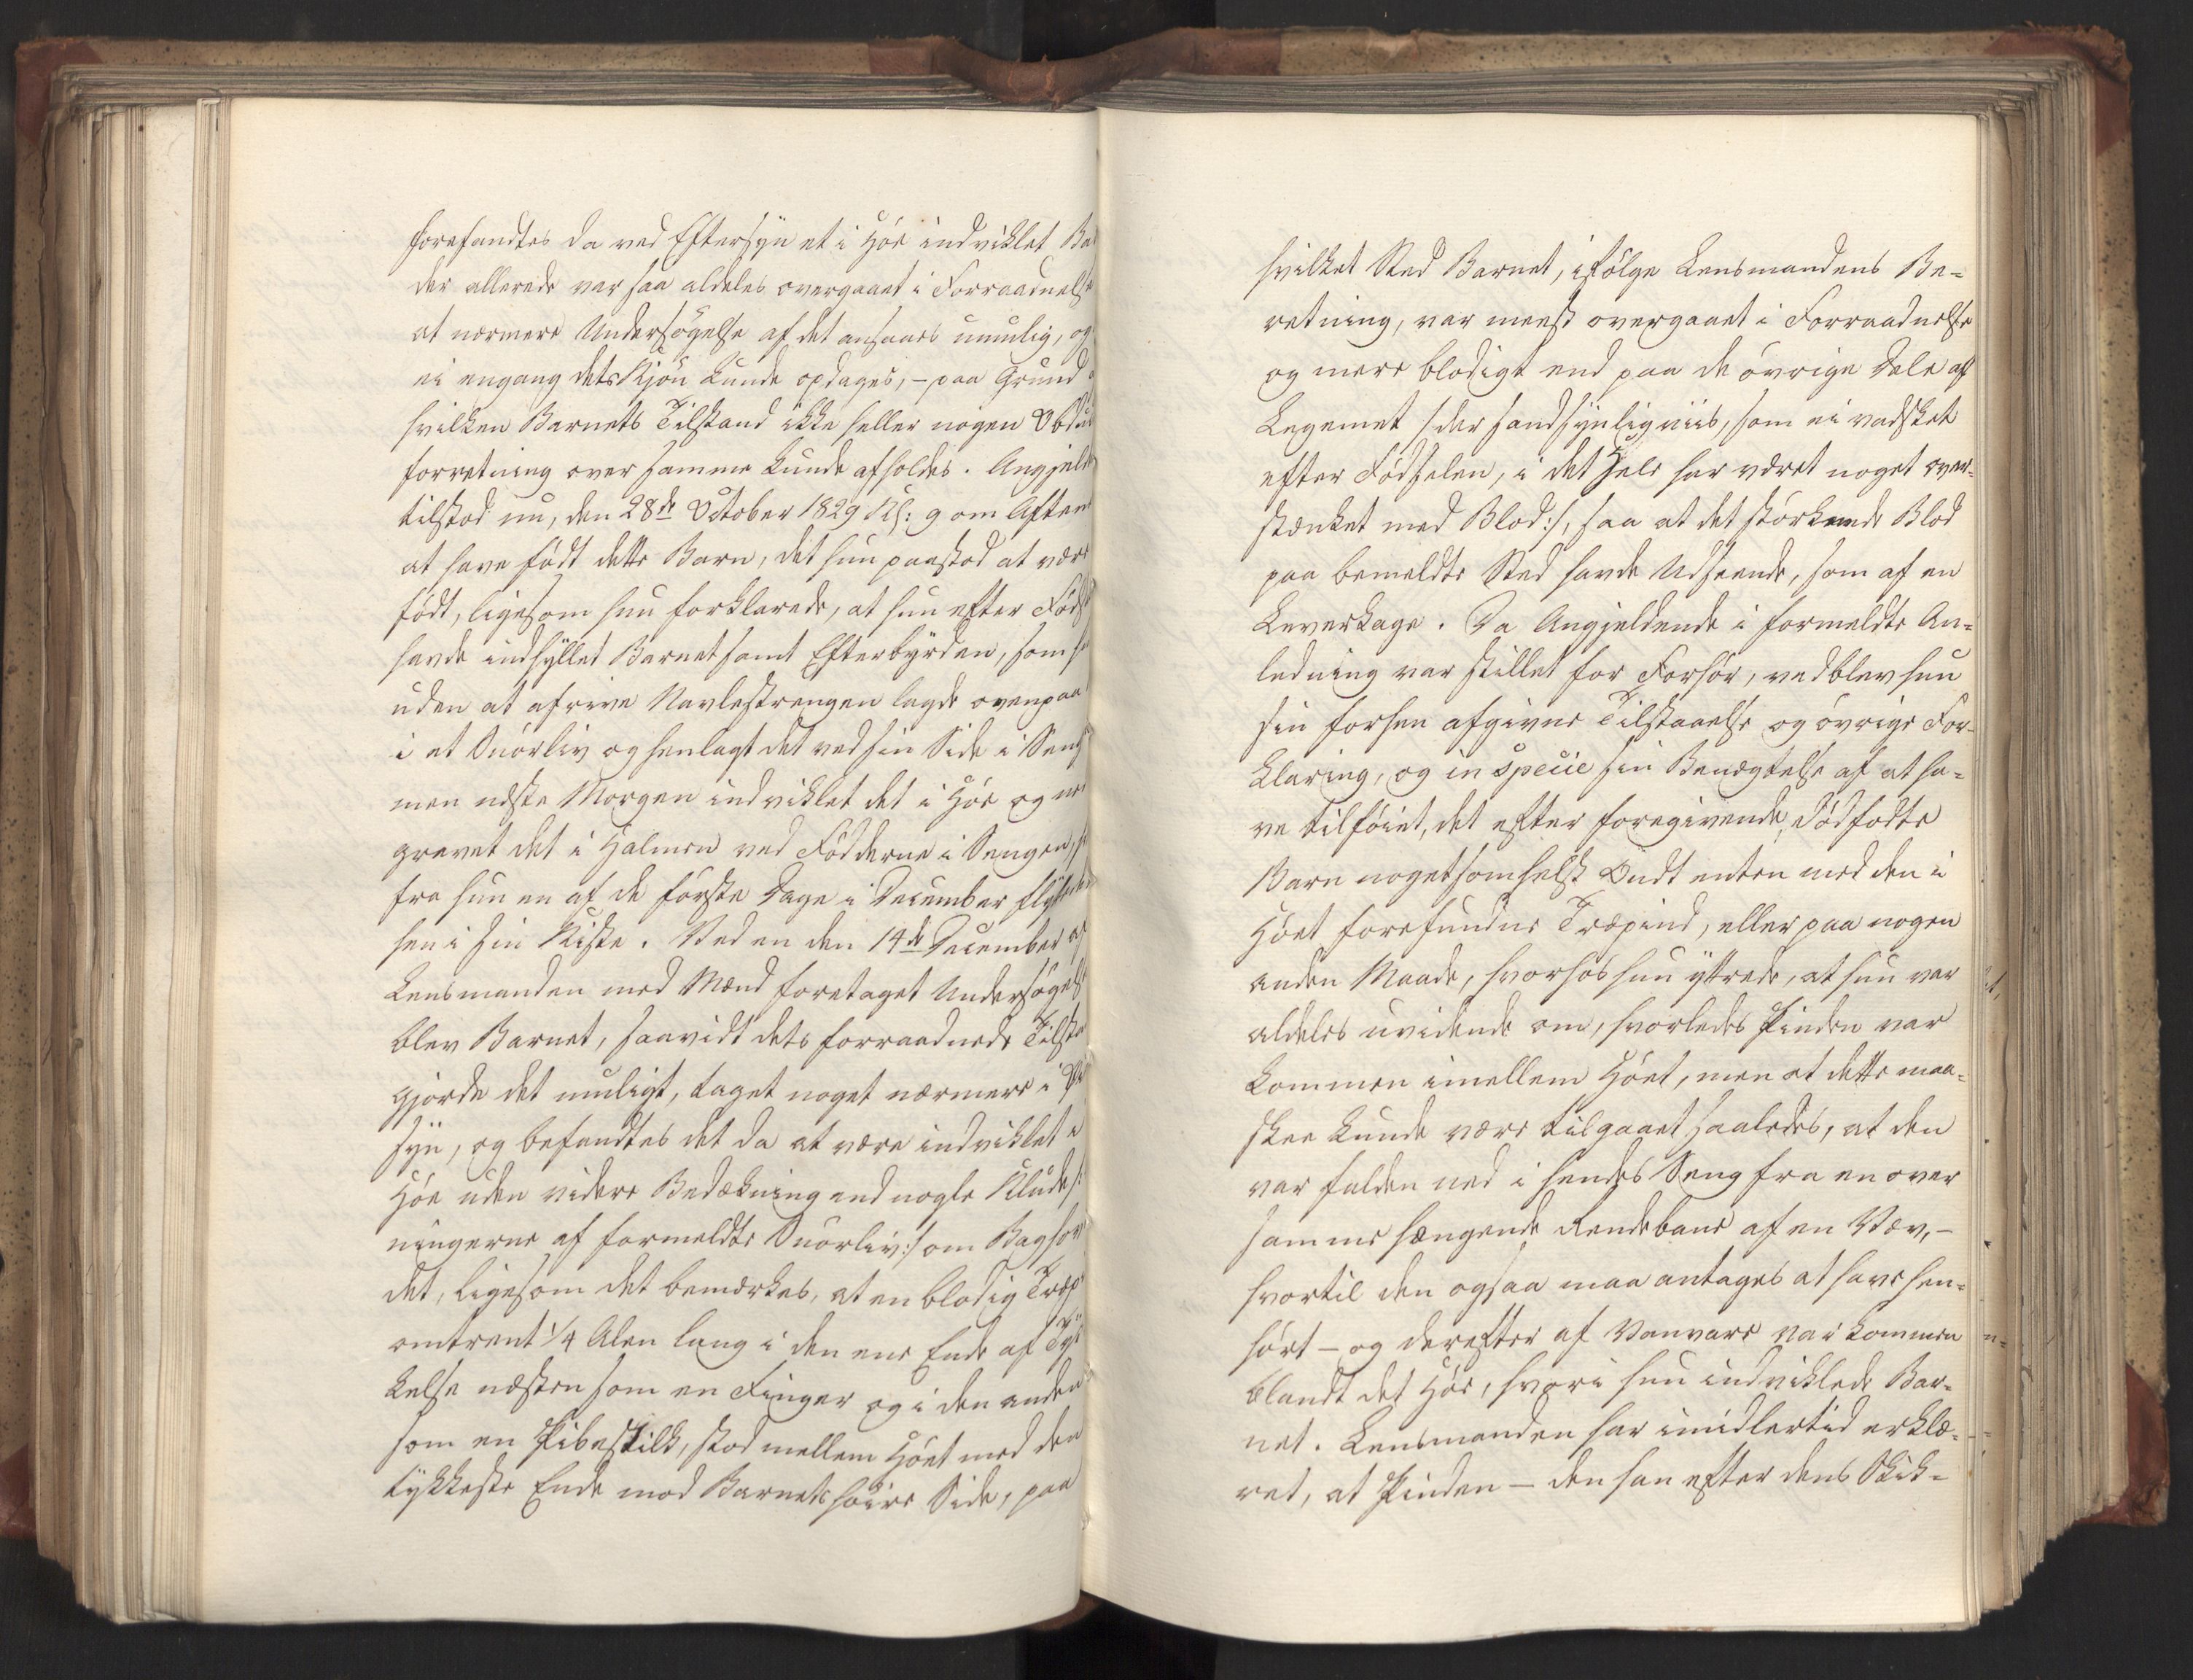 forefandtes da ved Eftersÿn et i Höe indviklet Ba
der allerede var saa aldeles overgaaet i Forraadnelse
at nærmere Undersögelse af det ansaaes umulig, og
ei engang dets Kjön kunde opdages, – paa Grund
hvilken Barnets Tilstand ikke heller nogen Obdu
forretning over samme kunde afholdes. Angjeld
tilstod nu, den 28de October 1829 Kl: 9 om Aften
at have födt dette Barn, det hun paastod at være
födt, ligesom hun forklarede, at hun efter Föds
havde indhÿllet Barnet samt Efterbÿrden, som h
uden at afrive Navlestrengen lagde ovenpaa
i et Snörliv og henlagt det ved sin Side i Seng
men næste Morgen indviklet det i Höe og ne
gravet det i Halmen ved Födderne i Sengen,
fra hun en af de förste Dage i December flÿtte
hen i sin Kiste. Ved en den 14de December af
Lensmanden med Mænd foretaget Undersögels
blev Barnet, saavidt dets forraadnede Tilsta
gjorde det muligt, taget noget nærmere i Øi
sÿn, og befandtes det da at være indviklet i
Höe uden videre Bedækning end nogle Klude /:
ningerne af formeldte Snörliv :/ om Baghov
det, ligesom det bemærkes, at en blodig Træp
omtrent 1/4 Alen lang i den ene Ende af Tÿk
kelse næsten som en Finger og i den anden
som en Pibestilk, stod mellem Höet med den
tykkeste Ende mod Barnets höire Side, paa
hvilket Sted Barnet, ifölge Lensmandens Be-
retning, var meest overgaaet i Forraadnelse
og mere blodigt end paa de övrige Dele af
Legemet /: der sandsÿnligviis, som ei vadsket
efter Födselen, i det Hele har været noget over-
stænket med Blod :/, saa at det störknede Blod
paa bemeldte Sted havde Udseende, som af en
Leverkage. Da Angjeldende i formeldte An-
ledning var stillet for Forhör, vedblev hun
sin forhen afgivne Tilstaaelse og övrige For-
klaring, og in specie sin Benægtelse af at ha-
ve tilföiet, det efter foregivende, dödfödte
Barn nogetsomhelst Ondt enten med den i
Höet forefundne Træpind, eller paa nogen
anden Maade, hvorhos hun ÿttrede, at hun var
aldeles uvidende om, hvorledes Pinden var
kommen imellem Höet, men at dette maa-
skee kunde være tilgaaet saaledes, at den
var falden ned i hendes Seng fra en over
samme hængende Rendebane af en Væv, –
hvortil den ogsaa maa antages at have hen-
hört – og derefter af Vanvare var kommen
blandt det Höe, hvori hun indviklede Bar-
net. Lensmanden har imidlertid erklæ-
ret, at Pinden – den han efter dens Skik-